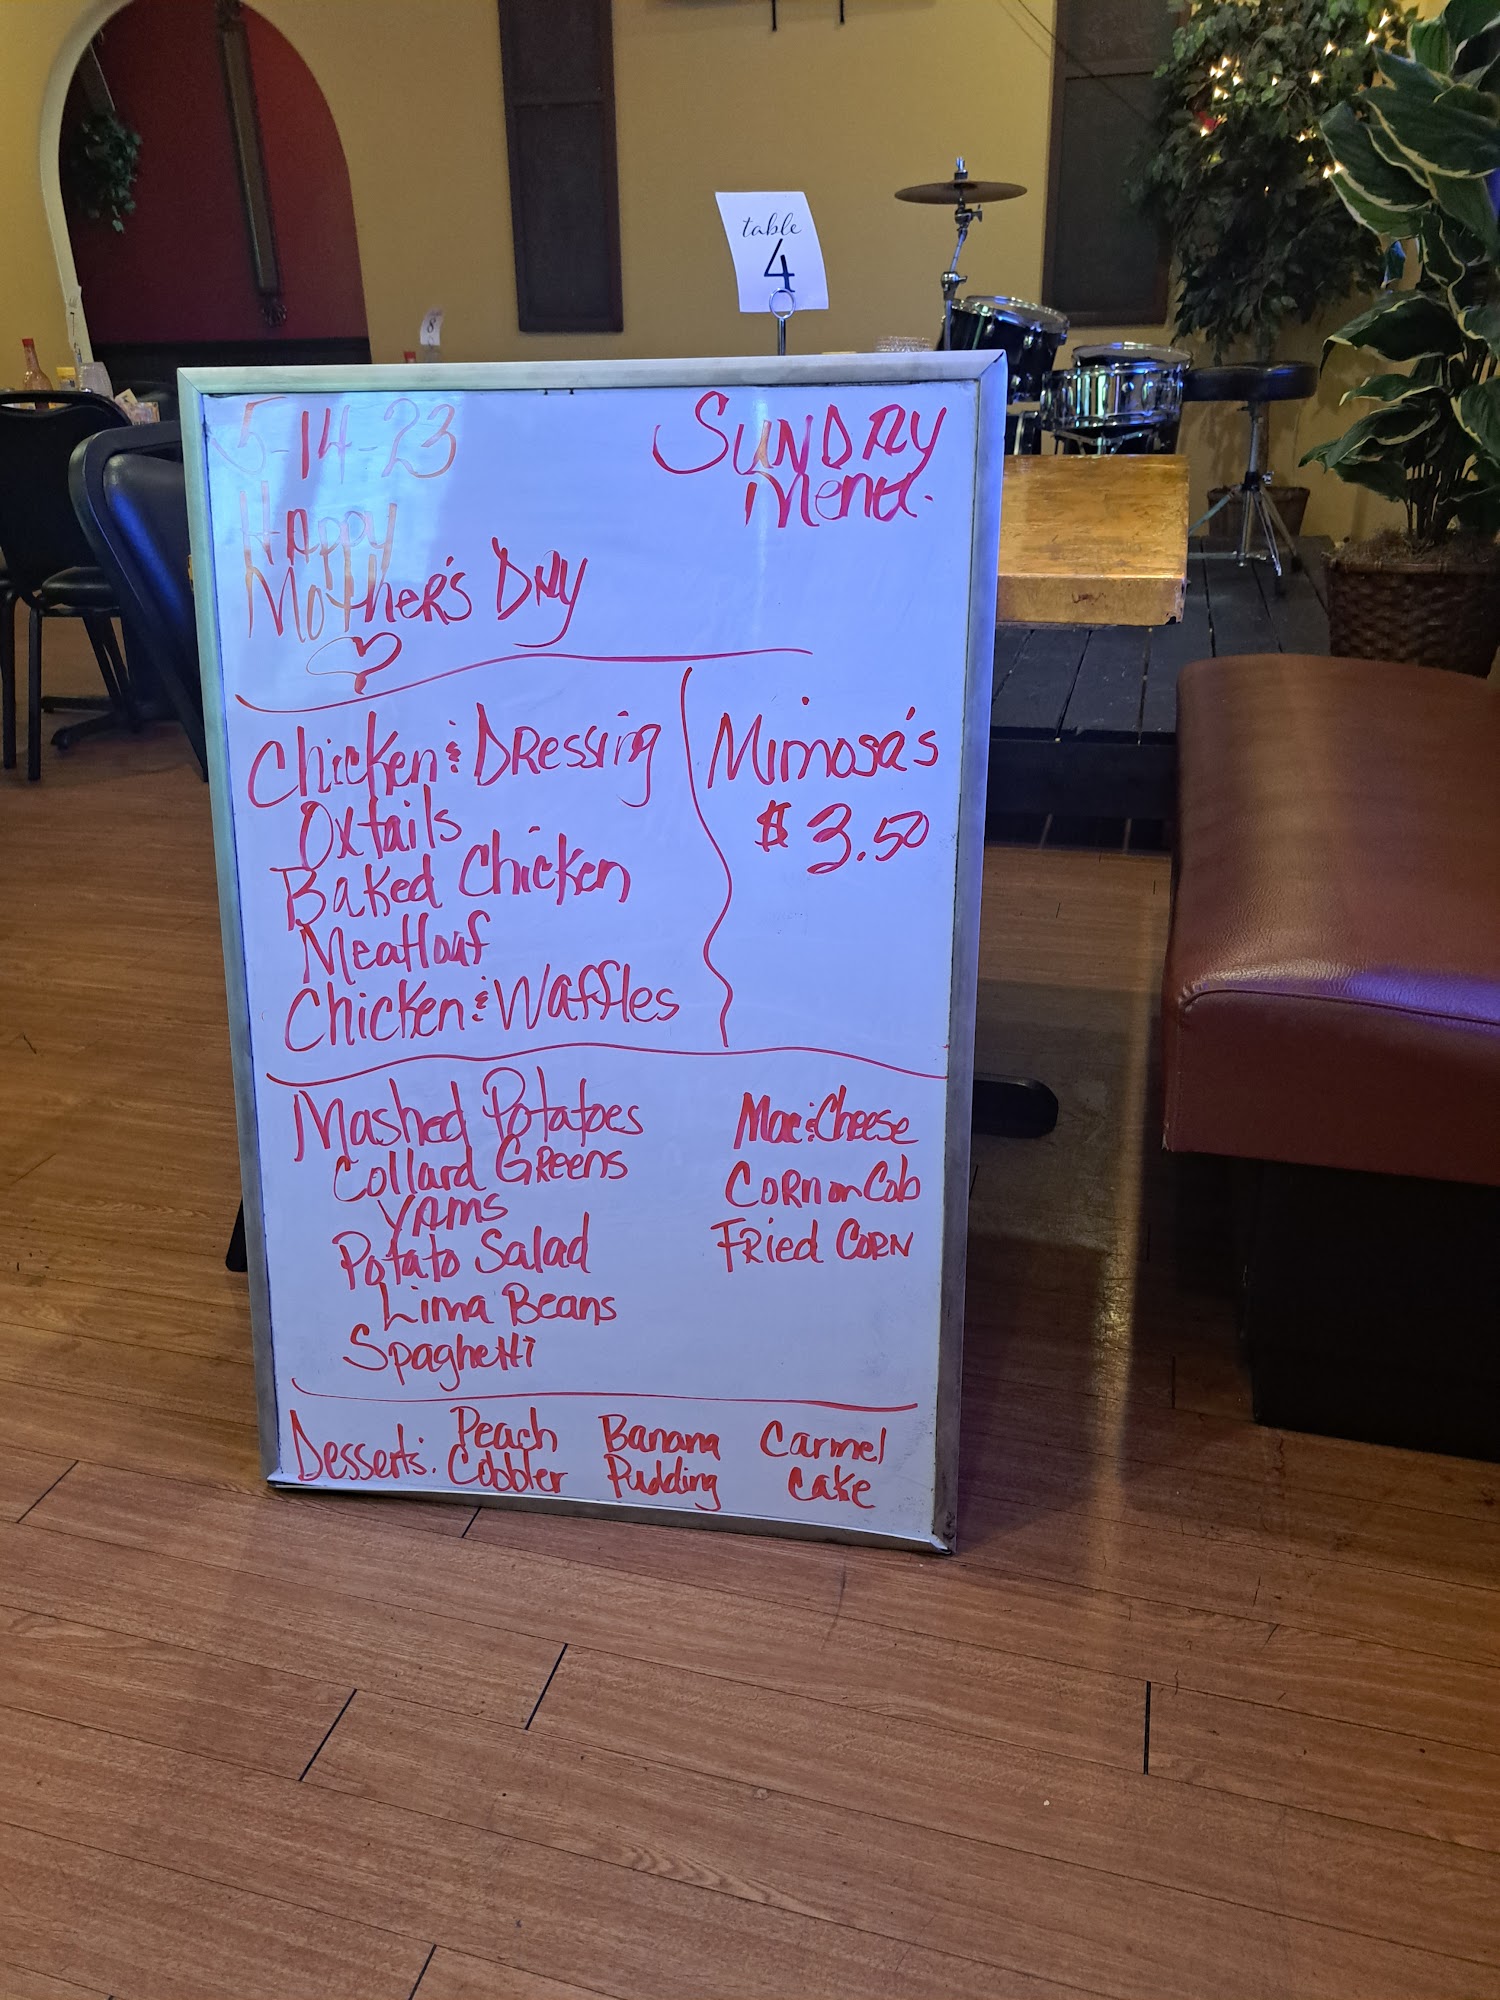 table
4
8
5-14-23
SUNDAY
Menu.
Happy
Mother's DAY
Chicken & Dressing
Oxtails
Baked Chicken
Meatloaf
Chicken & Waffles
Mimosa's
$3.50
Mashed Potatoes
Collard Greens
YAMS
Potato Salad
Lima Beans
Spaghetti
Mac & Cheese
CORN on Cob
Fried CORN
Desserts: Peach Cobbler
Banana Pudding
Carmel Cake